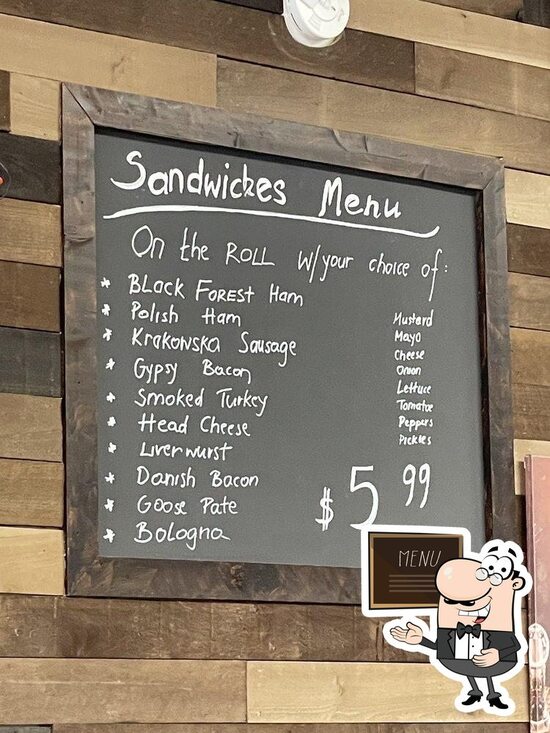 Sandwiches Menu
On the ROLL w/your choice of:
* BLACK FOREST Ham
* Polish Ham
* Krakowska Sausage
* Gypsy Bacon
* Smoked Turkey
* Head Cheese
* Liverwurst
* Danish Bacon
* Goose Pate
* Bologna
Mustard
Mayo
Cheese
Onion
Lettuce
Tomatoe
Peppers
Pickles
$5 99
MENU